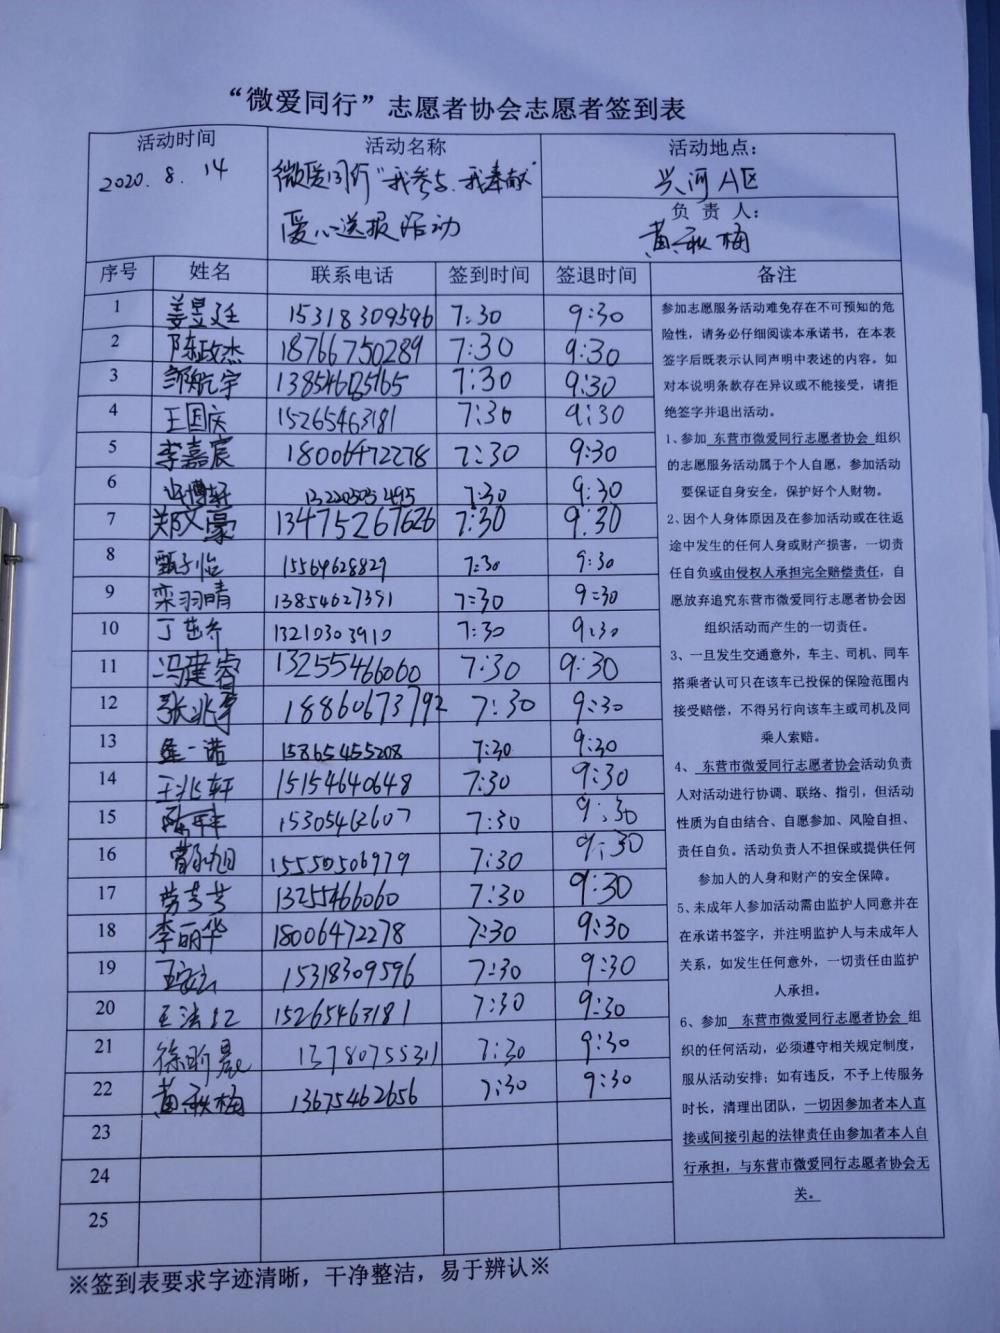 “微爱同行”志愿者协会志愿者签到表
活动时间
2020. 8. 14
活动名称
微爱同行“我参与.我奉献”
爱心送报活动
活动地点：
兴河A区
负 责 人：
黄秋梅
序号 姓名 联系电话 签到时间 签退时间 备注
1 姜昱廷 15318309596 7:30 9:30
2 陈政杰 18766750289 7:30 9:30
3 邹航宇 7:30 9:30
4 王国庆 15265463181 7:30 9:30
5 李嘉宸 18006472278 7:30 9:30
6 7:30 9:30
7 郑文豪 13475267626 7:30 9:30
8 甄子怡 15564628829 7:30 9:30
9 栾羽晴 13854627391 7:30 9:30
10 13210303910 7:30 9:30
11 冯建睿 13255466060 7:30 9:30
12 18860673792 7:30 9:30
13 一诺 15865455208 7:30 9:30
14 王兆轩 15154640648 7:30 9:30
15 15305462607 7:30 9:30
16 15550506979 7:30 9:30
17 1325466060 7:30 9:30
18 李丽华 18006472278 7:30 9:30
19 15318309596 7:30 9:30
20 王法江 15265463181 7:30 9:30
21 徐昕晨 13780755311 7:30 9:30
22 黄秋梅 13675462656 7:30 9:30
23
24
25
参加志愿服务活动难免存在不可预知的危
险性，请务必仔细阅读本承诺书，在本表
签字后既表示认同声明中表述的内容。如
对本说明条款存在异议或不能接受，请拒
绝签字并退出活动。
1、参加 东营市微爱同行志愿者协会 组织
的志愿服务活动属于个人自愿，参加活动
要保证自身安全，保护好个人财物。
2、因个人身体原因及在参加活动或在往返
途中发生的任何人身或财产损害，一切责
任自负或由侵权人承担完全赔偿责任，自
愿放弃追究东营市微爱同行志愿者协会因
组织活动而产生的一切责任。
3、一旦发生交通意外，车主、司机、同车
搭乘者认可只在该车已投保的保险范围内
接受赔偿，不得另行向该车主或司机及同
乘人索赔。
4、 东营市微爱同行志愿者协会活动负责
人对活动进行协调、联络、指引，但活动
性质为自由结合、自愿参加、风险自担、
责任自负。活动负责人不担保或提供任何
参加人的人身和财产的安全保障。
5、未成年人参加活动需由监护人同意并在
在承诺书签字，并注明监护人与未成年人
关系，如发生任何意外，一切责任由监护
人承担。
6、参加 东营市微爱同行志愿者协会 组
织的任何活动，必须遵守相关规定制度，
服从活动安排；如有违反，不予上传服务
时长，清理出团队，一切因参加者本人直
接或间接引起的法律责任由参加者本人自
行承担，与东营市微爱同行志愿者协会无
关。
※签到表要求字迹清晰，干净整洁，易于辨认※